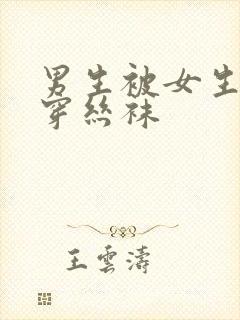 男生被女生
穿絲袜
王雲濤